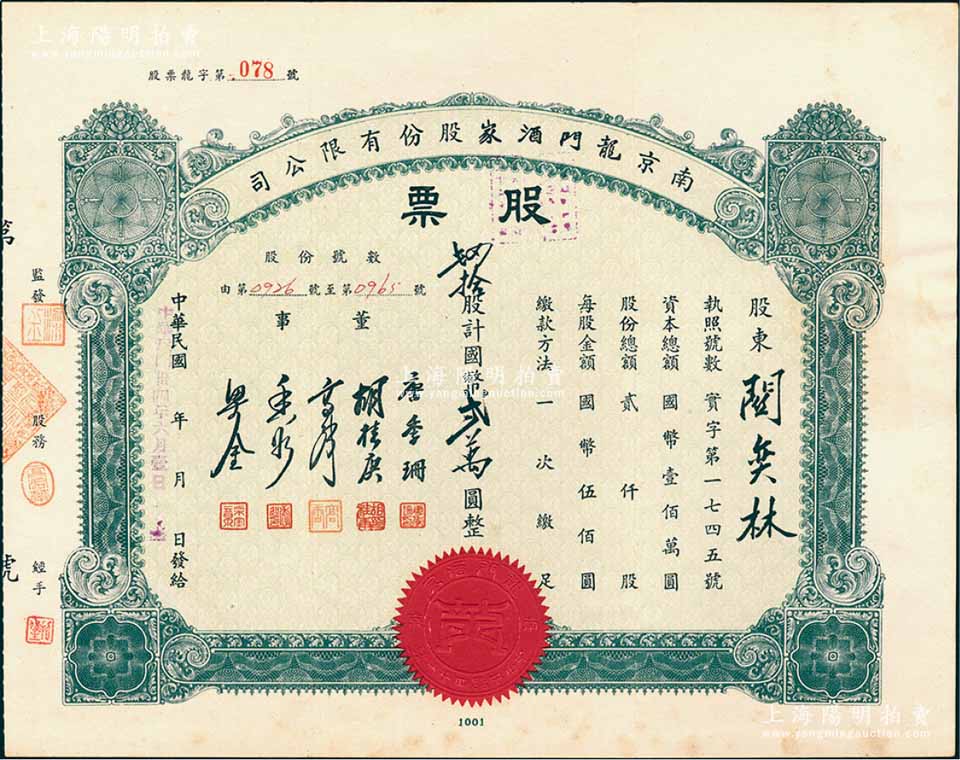 上海陽明拍賣
www.yangmingauction.com
股票龍字第 078 號
南京龍門酒家股份有限公司
股票
股東 關奕林
執照號數 實字第一七四五號
資本總額 國幣壹佰萬圓
股份總額 貳仟股
每股金額 國幣伍佰圓
繳款方法 一次繳足
肆拾股計國幣貳萬圓整
股份號數
由第0926號至第0965號
董事
胡桂庚
中華民國 年 月 日發給
第
號
監發
股務
經手
1001
上海陽明拍賣
www.yangmingauction.com
上海陽明拍賣
www.yangmingauction.com